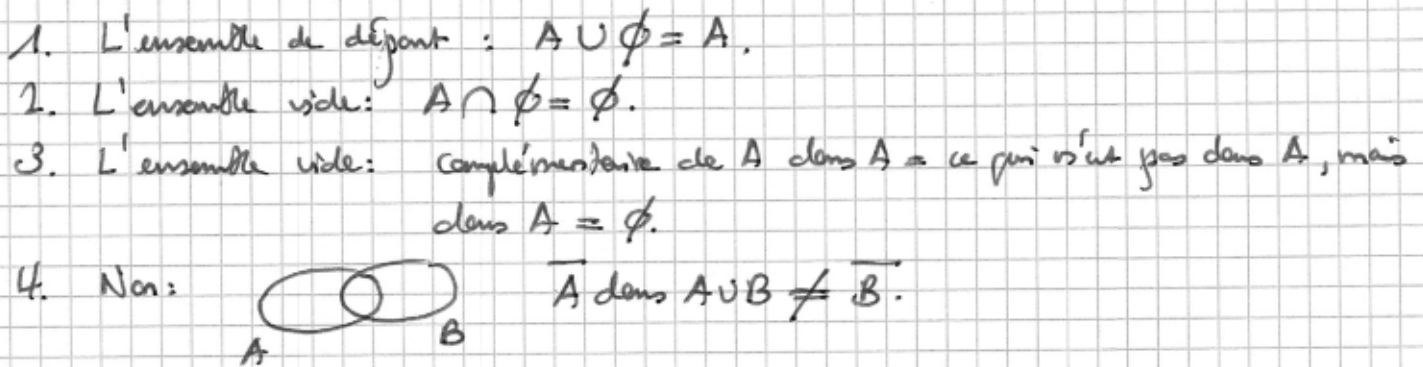 1. L'ensemble de départ : A ∪ ∅ = A.
2. L'ensemble vide: A ∩ ∅ = ∅.
3. L'ensemble vide: complémentaire de A dans A = ce qui n'est pas dans A, mais
dans A = ∅.
4. Non: A̅ dans A∪B ≠ B̅.
A B